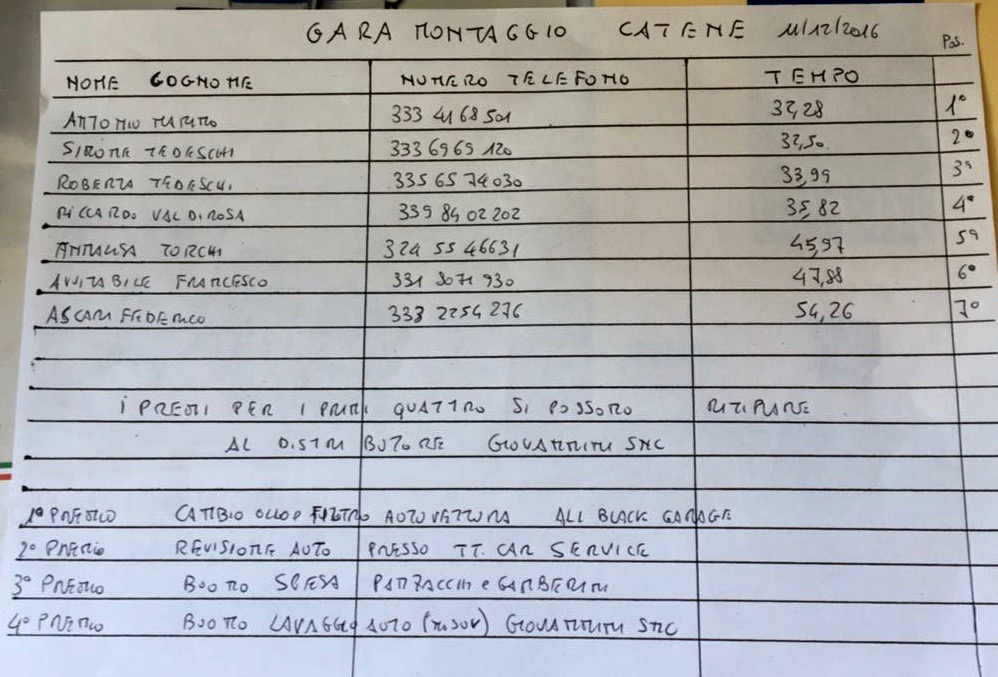 GARA MONTAGGIO CATENE 11/12/2016
Pos.
NOME COGNOME NUMERO TELEFONO TEMPO
ANTONIO MARINO 333 4168501 32,28 1°
SIMONE TEDESCHI 333 6969 120 32,50 2°
ROBERTA TEDESCHI 335 65 74 030 33,99 3°
RICCARDO VALDIROSA 339 84 02 202 35,82 4°
ANNALISA TORCHI 324 55 46631 45,97 5°
AVVITABILE FRANCESCO 331 3071 930 47,88 6°
ASCARI FEDERICO 333 2254 276 54,26 7°
I PREMI PER I PRIMI QUATTRO SI POSSONO RITIRARE
AL DISTRIBUTORE GIOVANNINI SNC
1° PREMIO CAMBIO OLIO E FILTRO AUTOVETTURA ALL BLACK GARAGE
2° PREMIO REVISIONE AUTO PRESSO TT. CAR SERVICE
3° PREMIO BUONO SPESA PANZACCHI e GAMBERINI
4° PREMIO BUONO LAVAGGIO AUTO GIOVANNINI SNC